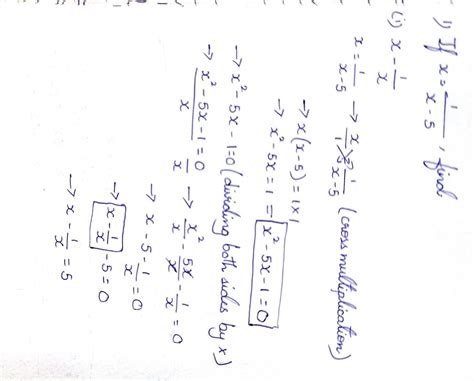 1) If x = 1/(x-5), find
= (i) x - 1/x
x = 1/(x-5) → x/1 = 1/(x-5) (cross multiplication)
→ x(x-5) = 1×1
→ x² - 5x = 1 = x² - 5x - 1 = 0
→ x² - 5x - 1 = 0 (dividing both sides by x)
→ (x² - 5x - 1)/x = 0/x → x²/x - 5x/x - 1/x = 0
→ x - 5 - 1/x = 0
→ x - 1/x - 5 = 0
→ x - 1/x = 5